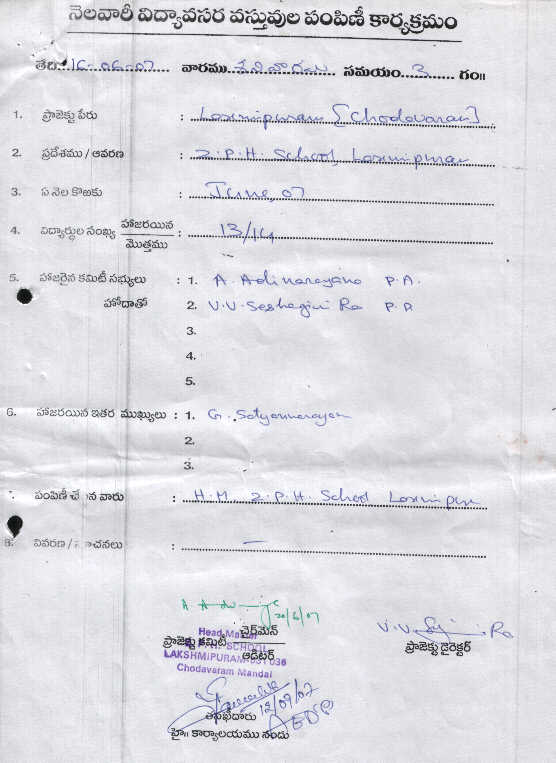 నెలవారీ విద్యావసర వస్తువుల పంపిణీ కార్యక్రమం
తేది: 16-06-07 వారము శనివారము సమయం 3 గం॥
1. ప్రాజెక్టు పేరు : Laxmipuram [Chodavaram]
2. ప్రదేశము / ఆవరణ : Z.P.H. School, Laxmipuram
3. ఏ నెల కొఱకు : June, 07
4. విద్యార్థుల సంఖ్య హాజరయిన / మొత్తము : 13/14
5. హాజరైన కమిటీ సభ్యులు : 1. A. Adinarayana P.A.
హోదాతో 2. V.V. Seshagiri Ra P.D
3.
4.
5.
6. హాజరయిన ఇతర ముఖ్యులు : 1. G. Satyannarayan
2.
3.
పంపిణీ చేసిన వారు : H.M. Z.P.H. School Laxmipur
8. వివరణ / సూచనలు : —
20/6/07
ప్రాజెక్టు కమిటీ చైర్‌మేన్ / ఆడిటర్
Head Master
SCHOOL
LAKSHMIPURAM-531 036
Chodavaram Mandal
V.V. Ra
ప్రాజెక్టు డైరెక్టర్
12/09/07
తనిఖీదారు
హై॥ కార్యాలయము నందు